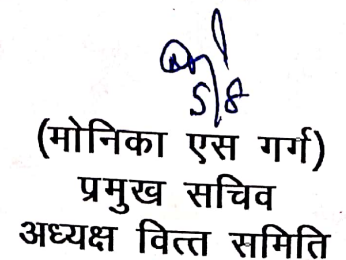 5/8
(मोनिका एस गर्ग)
प्रमुख सचिव
अध्यक्ष वित्त समिति